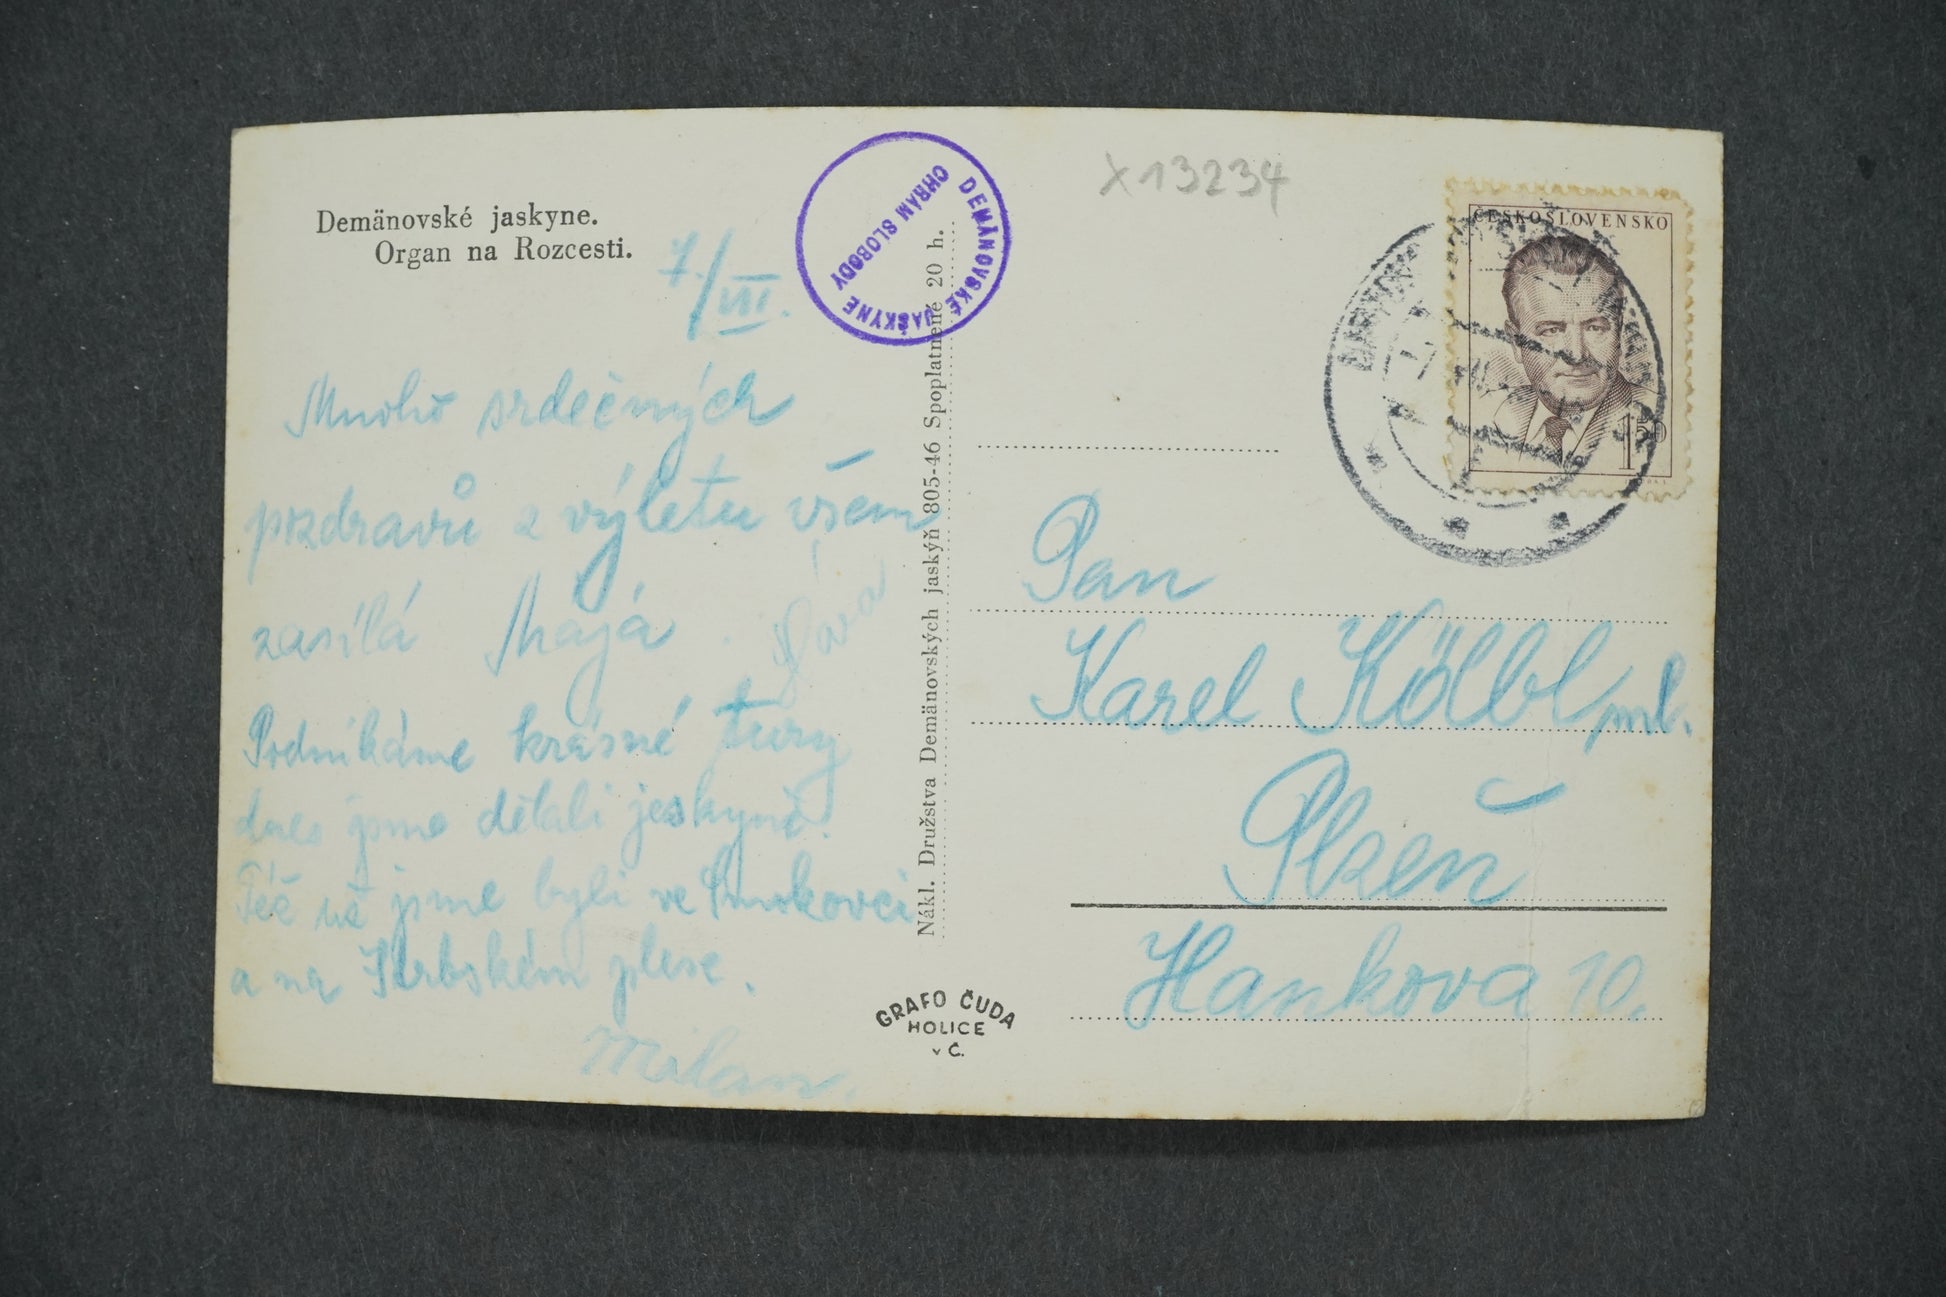 Demänovské jaskyne.
Organ na Rozcesti.
7./VIII.
Mnoho srdečných
pozdravů z výletu všem
zasílá Mája
Podnikáme krásné túry
dnes jsme dělali jeskyně.
Též už jsme byli ve Smokovci
a na Štrbském plese.
Milan.
DEMÄNOVSKÉ JASKYNE
CHRÁM SLOBODY
Nákl. Družstva Demänovských jaskýň 805-46 Spoplatnené 20 h.
GRAFO ČUDA
HOLICE
v Č.
X13234
ČESKOSLOVENSKO
1.20
Pan
Karel Kölbl ml.
Plzeň
Hankova 10.